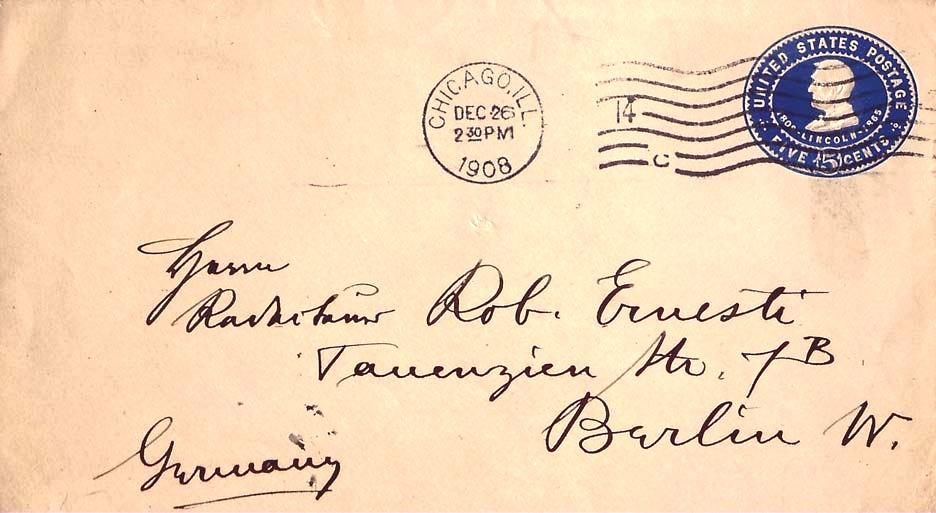 CHICAGO, ILL.
DEC 26
2 30 PM
1908
14
C
UNITED STATES POSTAGE
1809-LINCOLN-1865
FIVE 5 CENTS
Herrn
Rob. Ernesti
Tauenzien Str. 7B
Berlin W.
Germany